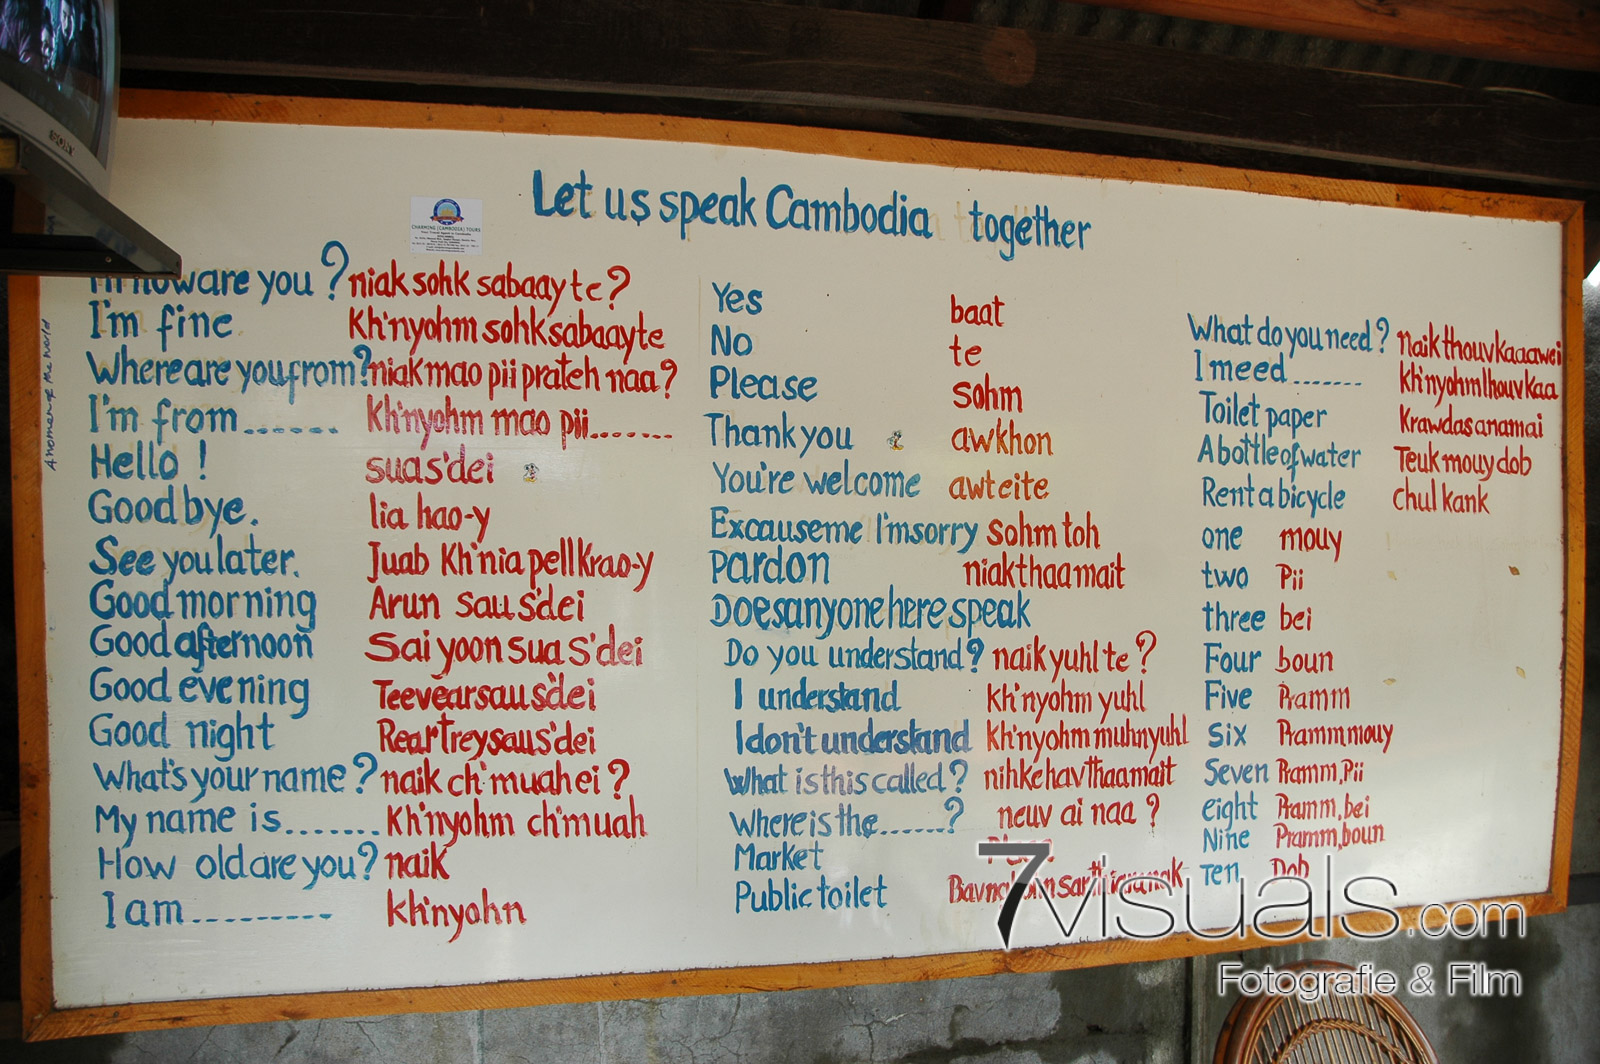 SONY
Let us speak Cambodia together
CHARMING (CAMBODIA) TOURS
A women of the world
are you ? niak sohk sabaay te ?
I'm fine Kh'nyohm sohk sabaay te
Where are you from? niak mao pii prateh naa?
I'm from...... Kh'nyohm mao pii.......
Hello ! suas'dei
Good bye. lia hao-y
See you later. Juab Kh'nia pell krao-y
Good morning Arun saus'dei
Good afternoon Sai yoon sua s'dei
Good evening Teevear saus'dei
Good night Rear Trey saus'dei
What's your name ? naik ch'muahei ?
My name is....... Kh'nyohm ch'muah
How old are you? naik
I am.......... kh'nyohn
Yes baat
No te
Please sohm
Thank you awkhon
You're welcome awteite
Excause me I'm sorry sohm toh
Pardon niak thaa mait
Does anyone here speak
Do you understand? naik yuhl te ?
I understand kh'nyohm yuhl
I don't understand kh'nyohm muhn yuhl
What is this called? nihkehav thaamait
Where is the......? neuv ai naa ?
Market
Public toilet
What do you need? naik thouv kaaawei
I meed ....... kh'nyohm lhouv kaa
Toilet paper Krawdas anamai
A bottle of water Teuk mouy dob
Rent a bicycle chul kank
one mouy
two Pii
three bei
Four boun
Five Pramm
Six Pramm mouy
Seven Pramm,Pii
eight Pramm,bei
Nine Pramm,boun
Ten Dob
7visuals.com
Fotografie & Film